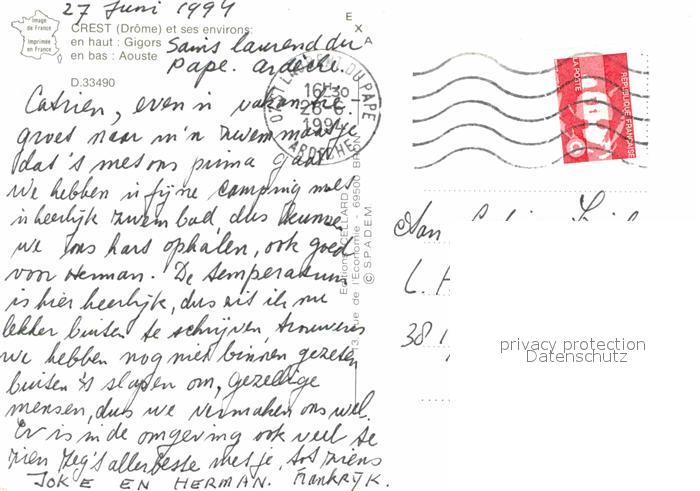 27 Juni 1994
Image de France
Imprimée en France
CREST (Drôme) et ses environs:
en haut : Gigors
en bas : Aouste
D.33490
EXA
Sains laurend du
Pape. ardèche.
07 ST LAURENT DU PAPE
16H30
28-6
1994
ARDECHE
LA POSTE
REPUBLIQUE FRANÇAISE
Catrien, even 'n vakantie
groet naar m'n zwemmaatje
dat 's mes ons prima gaat.
We hebben 'n fijne camping mes
'n heerlijk zwembad, dus kunnen
we ons hars ophalen, ook goed
voor Herman. De temperasuur
is hier heerlijk, dus wil ik nu
lekker buisen se schrijven, srouwens
we hebben nog nies binnen gezeten
buisen 's slapen om, gezellige
mensen, dus we vermaken ons wel.
Er is in de omgeving ook veel se
zien zeg 's allerbesse mes je, sos ziens
JOKE EN HERMAN. Frankrijk.
Editions CELLARD
13, rue de l'Economie - 69500 BRON
© S.P.A.D.E.M
Aan
L. H
38
privacy protection
Datenschutz